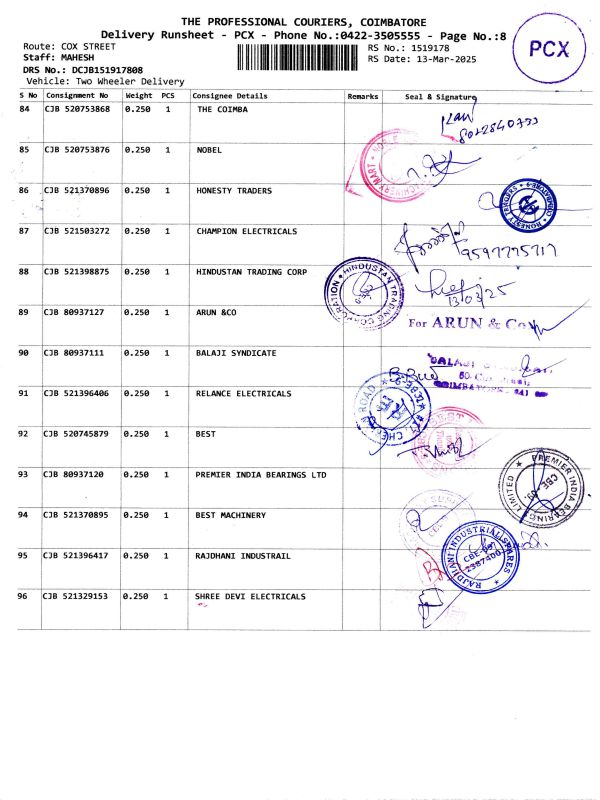 THE PROFESSIONAL COURIERS, COIMBATORE
Delivery Runsheet - PCX - Phone No.:0422-3505555 - Page No.:8
PCX
Route: COX STREET
RS No.: 1519178
Staff: MAHESH
RS Date: 13-Mar-2025
DRS No.: DCJB151917808
Vehicle: Two Wheeler Delivery
S No Consignment No Weight PCS Consignee Details Remarks Seal & Signature
84 CJB 520753868 0.250 1 THE COIMBA
85 CJB 520753876 0.250 1 NOBEL
86 CJB 521370896 0.250 1 HONESTY TRADERS
87 CJB 521503272 0.250 1 CHAMPION ELECTRICALS
9597775717
88 CJB 521398875 0.250 1 HINDUSTAN TRADING CORP
HINDUSTAN TRADING CORPORATION
13/03/25
89 CJB 80937127 0.250 1 ARUN &CO
For ARUN & Co
90 CJB 80937111 0.250 1 BALAJI SYNDICATE
91 CJB 521396406 0.250 1 RELANCE ELECTRICALS
92 CJB 520745879 0.250 1 BEST
93 CJB 80937120 0.250 1 PREMIER INDIA BEARINGS LTD
PREMIER INDIA BEARING LIMITED
94 CJB 521370895 0.250 1 BEST MACHINERY
95 CJB 521396417 0.250 1 RAJDHANI INDUSTRAIL
RAJDHANI INDUSTRIAL SPARES
96 CJB 521329153 0.250 1 SHREE DEVI ELECTRICALS